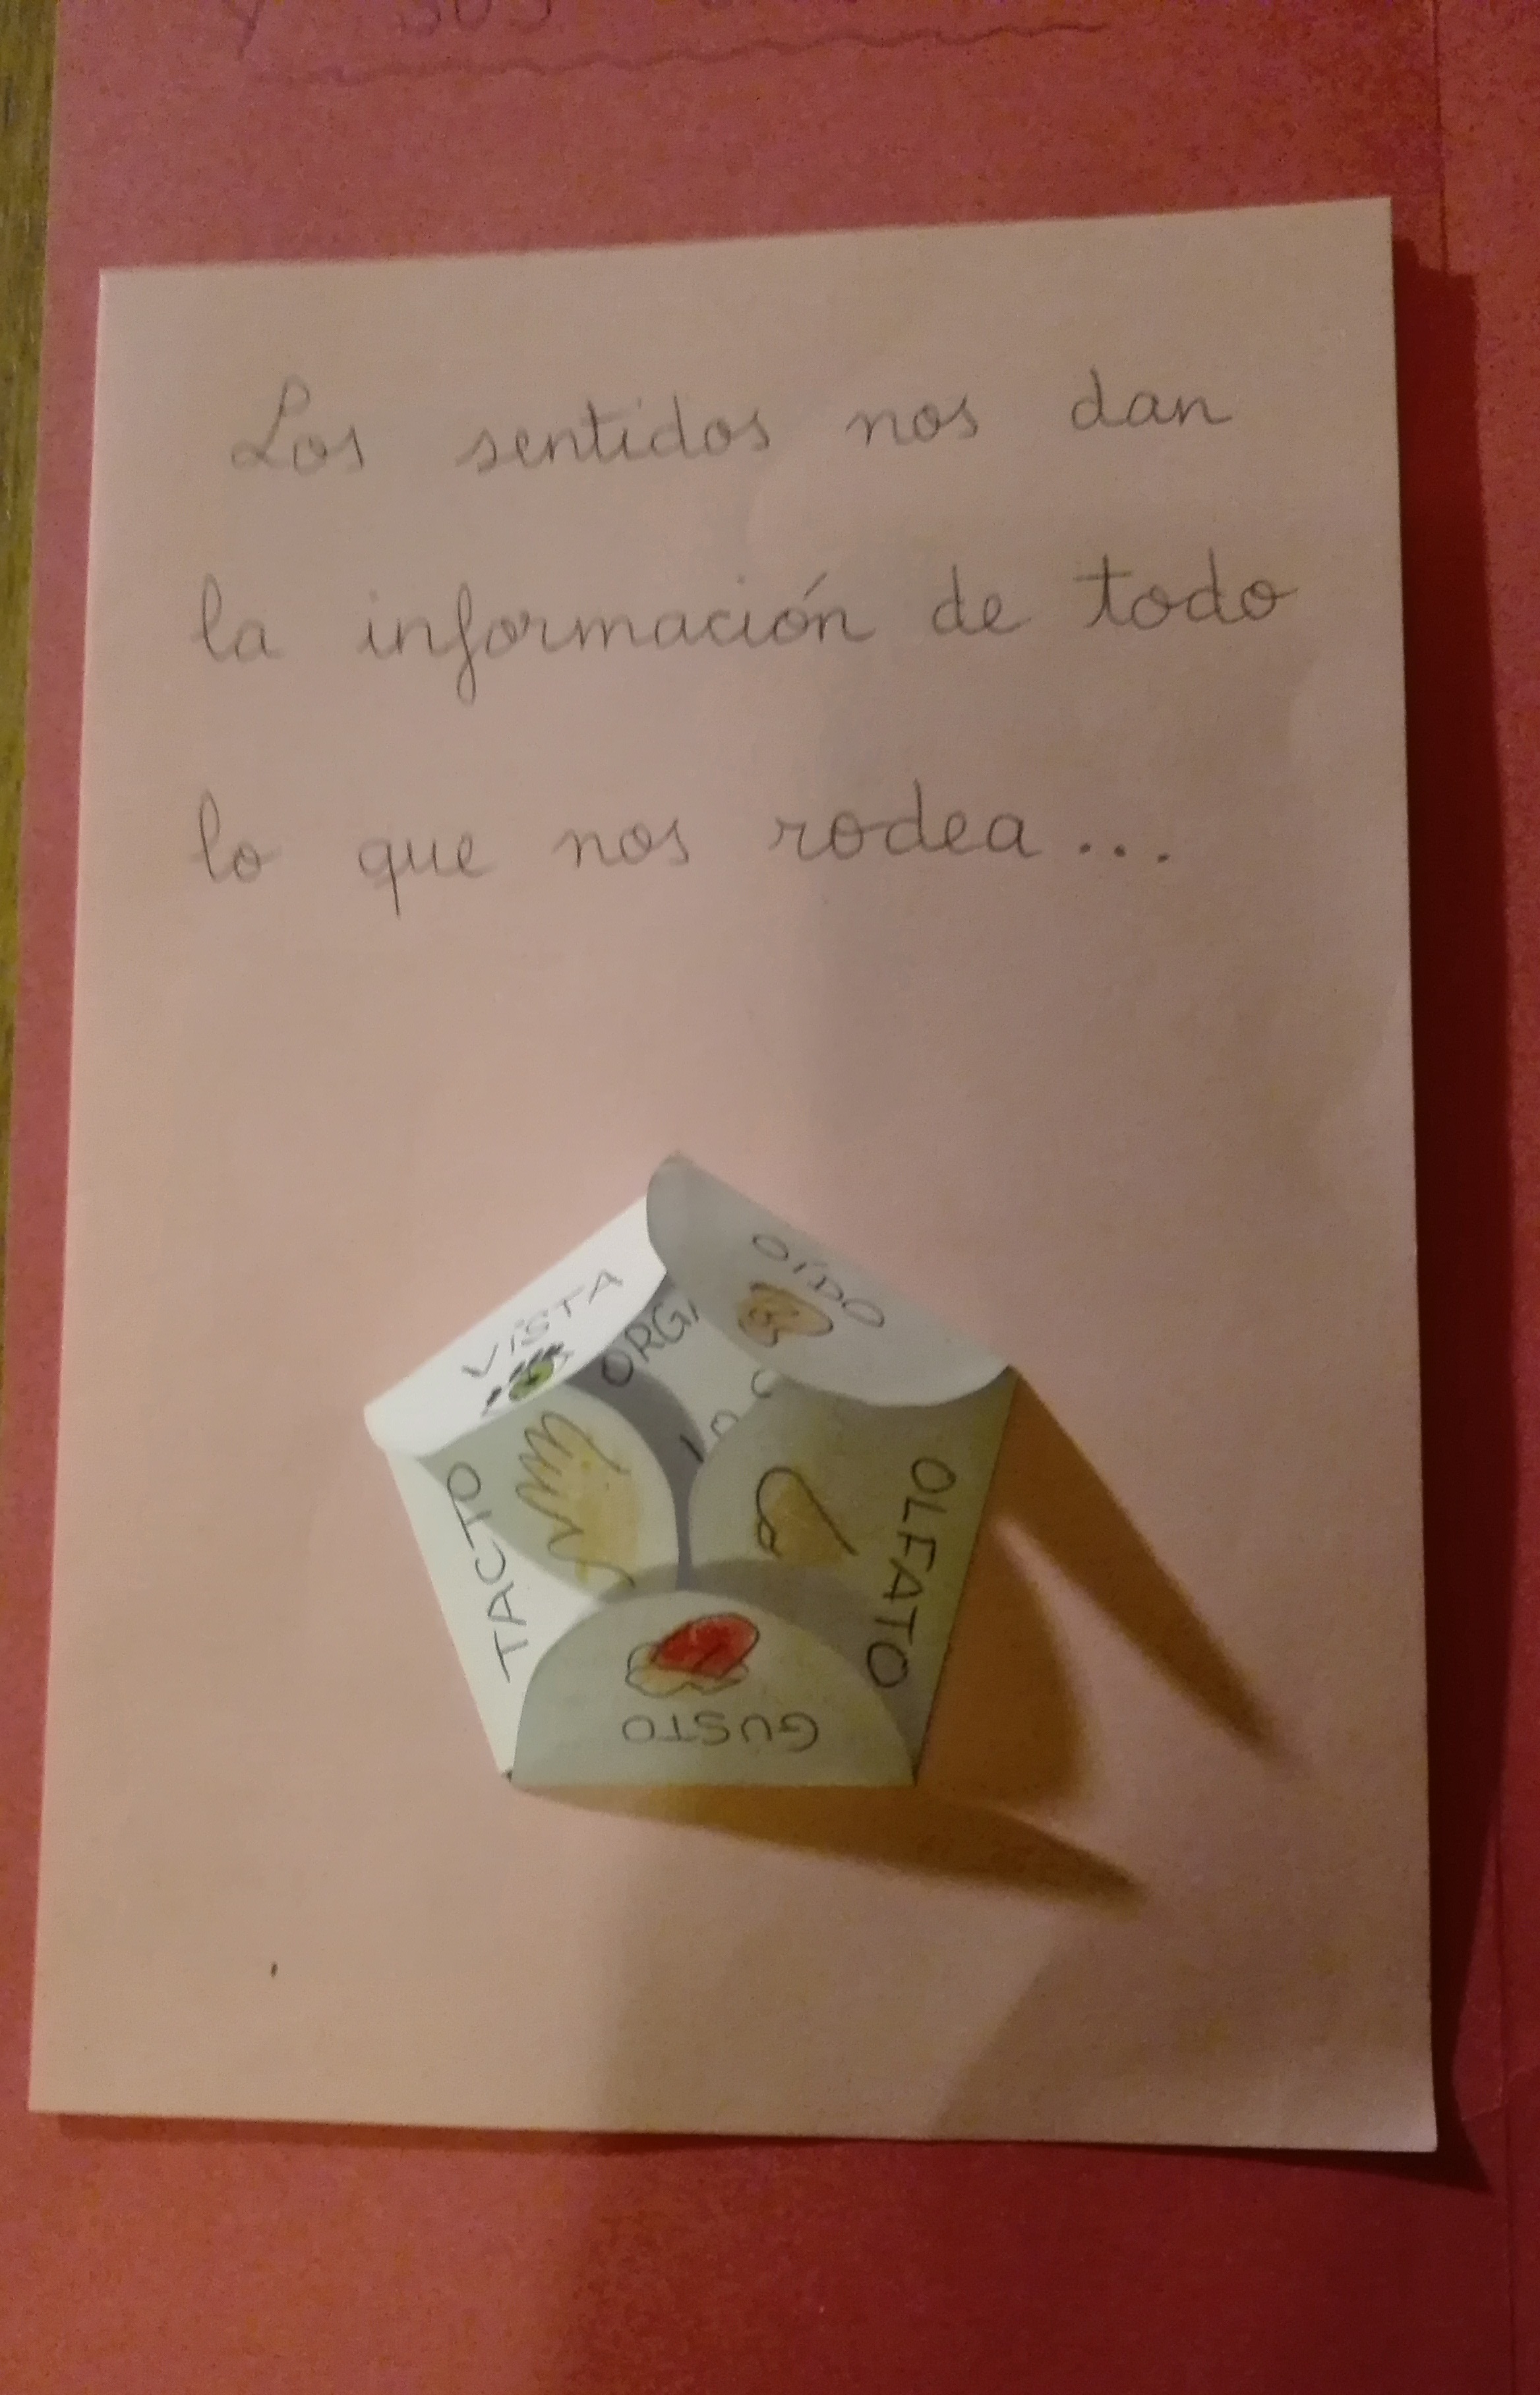 Y SUS
Los sentidos nos dan
la información de todo
lo que nos rodea...
OÍDO
VISTA
TACTO
OLFATO
GUSTO